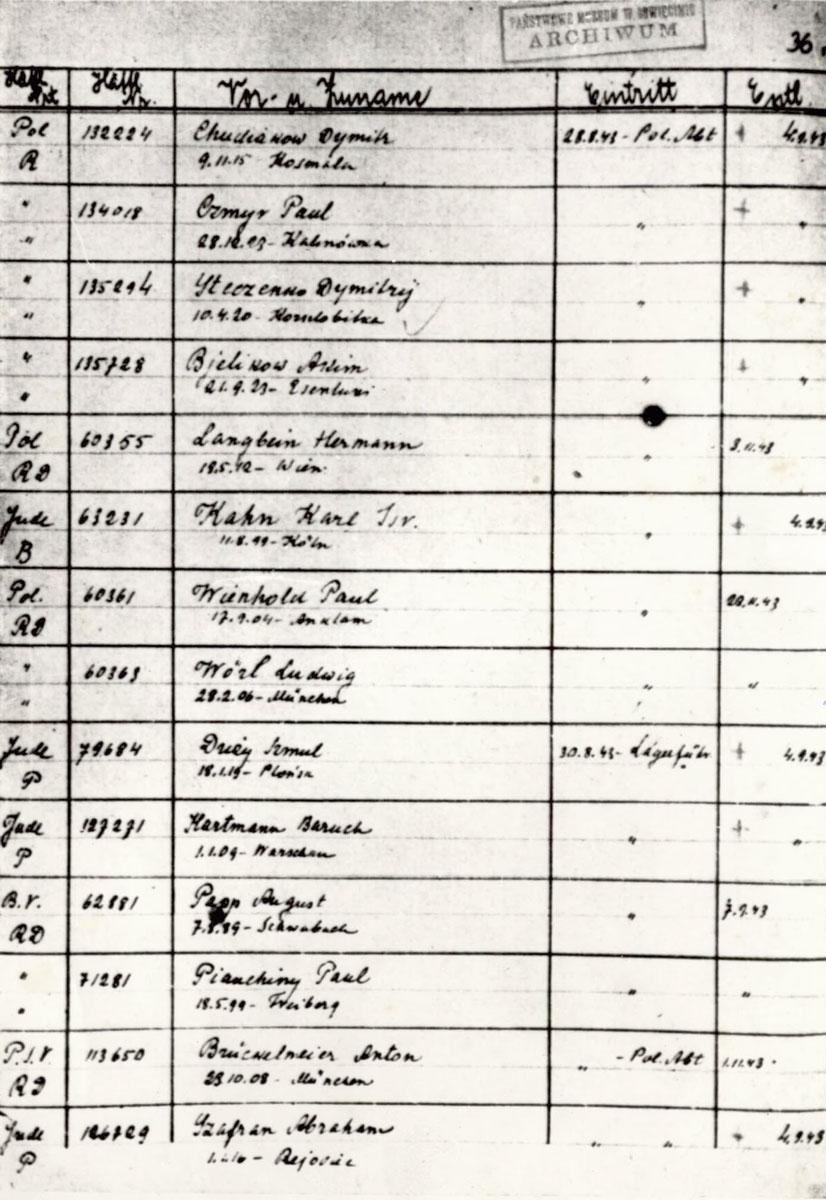 PAŃSTWOWE MUZEUM W OŚWIĘCIMIU
ARCHIWUM
36.
Häftl. Art Häftl. Nr. Vor- u. Zuname Eintritt Entl.
Pol 132224 Dymitr 28.8.43 - Pol. Abt + 4.9.43
R 9.11.15 -
" 134018 Czmyr Paul " + "
" 28.12.23 - Kalinówka
" 135294 Steczenko Dymitrij " + "
" 10.4.20 -
" 135728 Bjelikow Akim " + "
" 21.9.23 - Esentuki
Pol 60355 Langbein Hermann " 3.11.43
RD 18.5.12 - Wien
Jude 63231 Kahn Karl Isr. " + 4.9.43
B 11.8.99 - Köln
Pol. 60361 Wienhold Paul " 20.11.43
RD 17.9.04 - Anklam
" 60363 Wörl Ludwig " "
" 28.2.06 - München
Jude 79684 Szmul 30.8.43 - Lagerführ. + 4.9.43
P 18.1.19 - Płońsk
Jude 127271 Hartmann Baruch " + "
P 1.1.09 - Warschau
B.V. 62881 Papp August " 7.9.43
RD 7.8.89 - Schwabach
" 71281 Pianchiny Paul " "
" 18.5.99 - Freiberg
P.S.V. 113650 Brückelmeier Anton " - Pol. Abt 1.11.43
RD 23.10.08 - München
Jude 126729 Szafran Abraham " " + 4.9.43
P Rejowiec